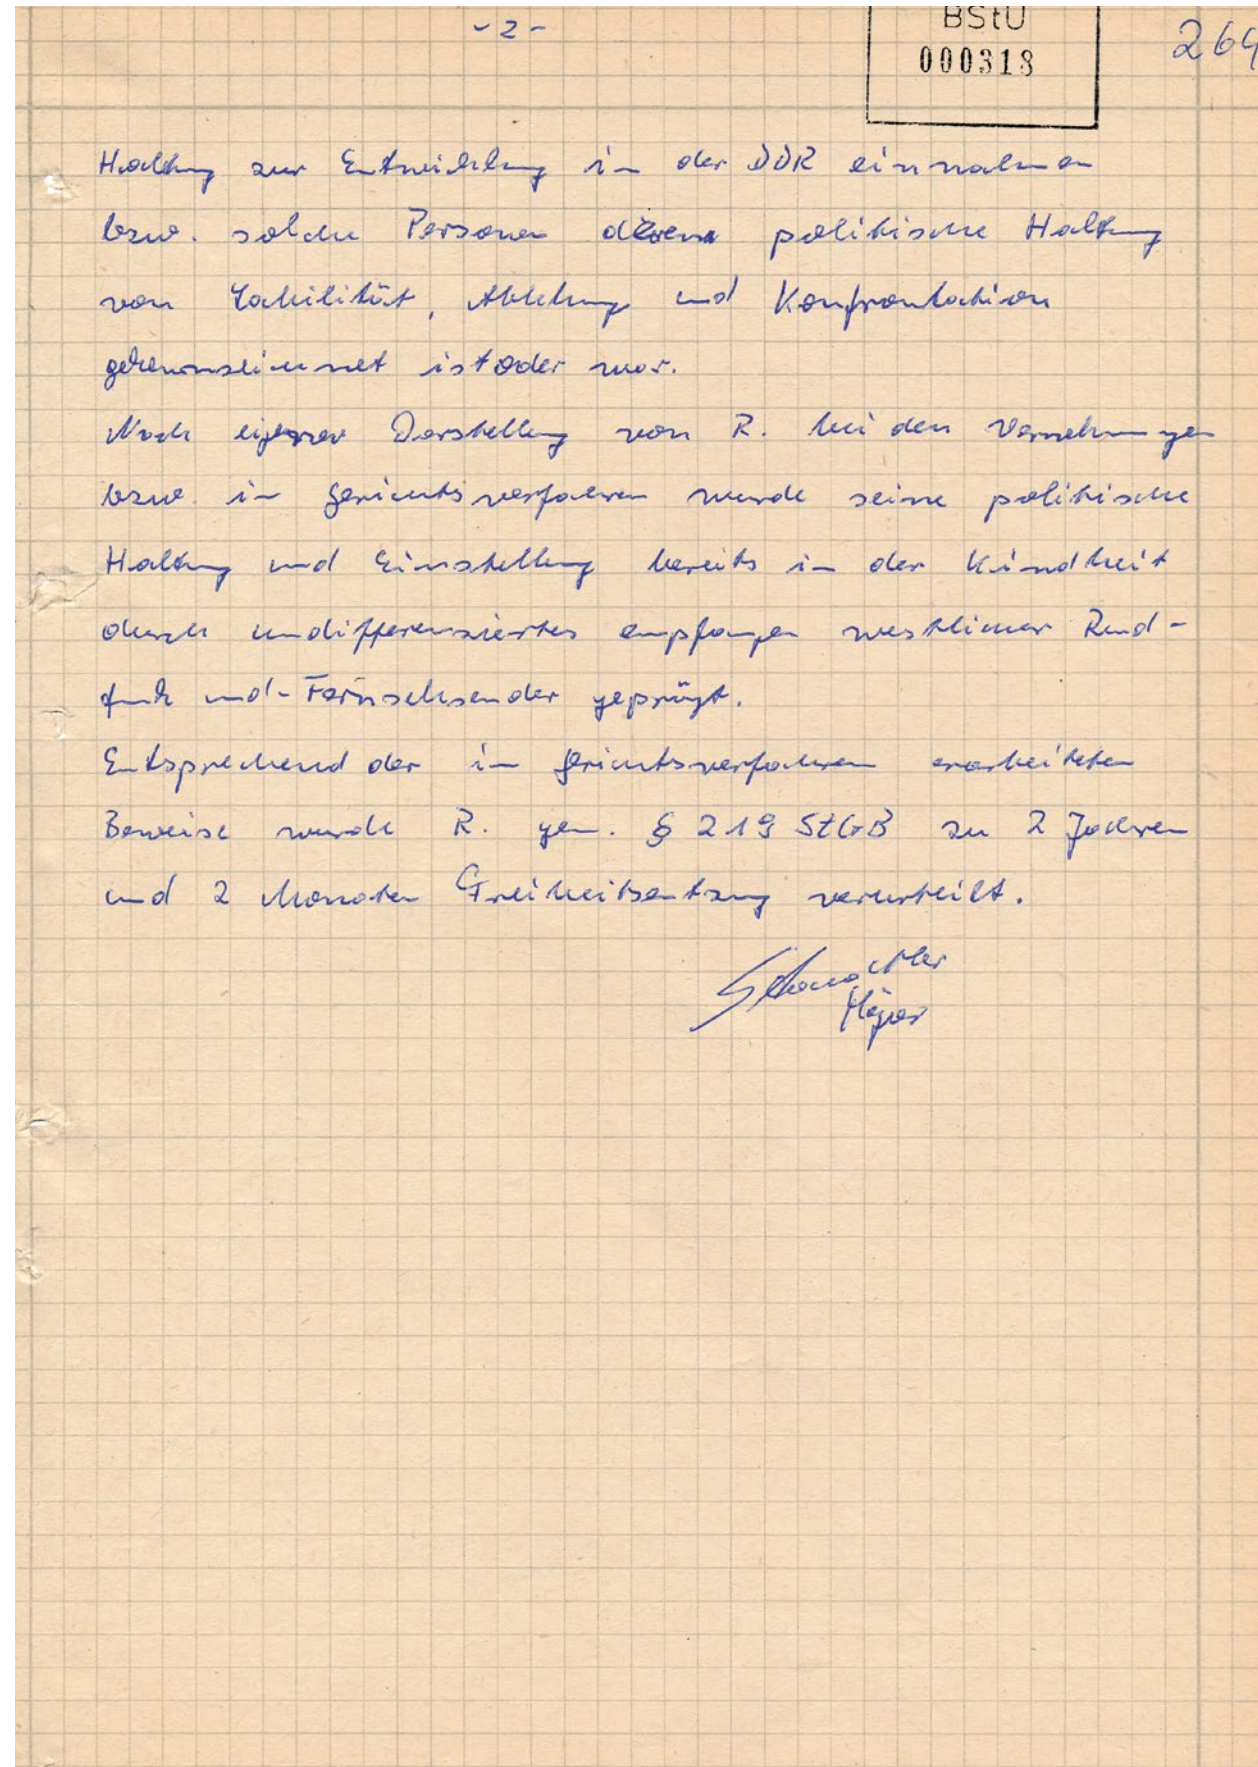 - 2 -
BStU
000318
264
Haltung zur Entwicklung in der DDR einnahmen
bzw. solche Personen deren politische Haltung
von Labilität, Ablehnung und Konfrontation
gekennzeichnet ist oder war.
Nach eigener Darstellung von R. bei den Vernehmungen
bzw. im Gerichtsverfahren wurde seine politische
Haltung und Einstellung bereits in der Kindheit
durch undifferenziertes empfangen westlicher Rund-
funk und - Fernsehsender geprägt.
Entsprechend der im Gerichtsverfahren erarbeiteten
Beweise wurde R. gem. § 219 StGB zu 2 Jahren
und 2 Monaten Freiheitsentzug verurteilt.
Major